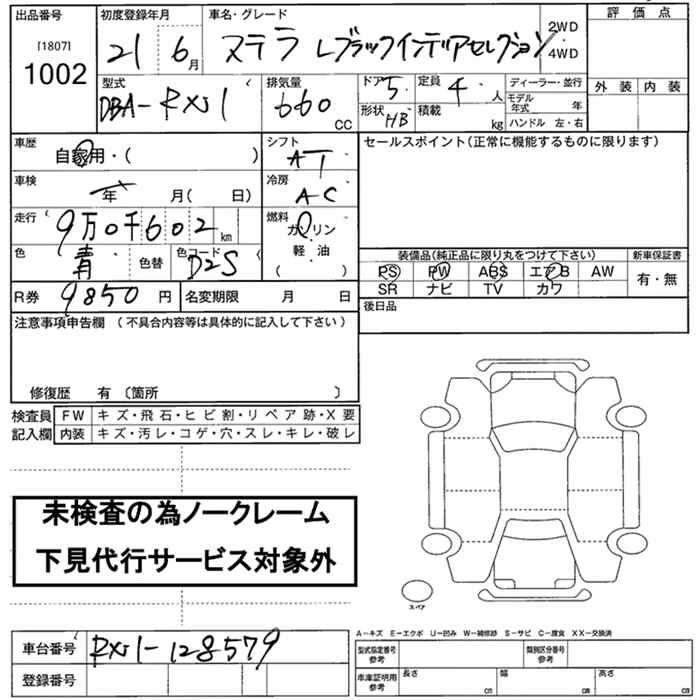 出品番号 初度登録年月 車名・グレード 評価点
[1807]
1002
21 6月 ステラ Lブラックインテリアセレクション 2WD・4WD
外装 内装
型式 排気量 ドア 5 定員 4人 ディーラー・並行
DBA-RXS1 660cc モデル年式 年
形状 HB 積載 kg ハンドル 左・右
車歴 自家用・( ) シフト AT セールスポイント(正常に機能するものに限ります)
車検 年 月( 日) 冷房 AC
走行 9万0千602km 燃料 ガソリン
軽・油
( )
色 青 色替 色コード D2S
装備品(純正品に限り丸をつけて下さい) 新車保証書
PS PW ABS エアB AW 有・無
SR ナビ TV カワ
R券 9850円 名変期限 月 日 後日品
注意事項申告欄 (不具合内容等は具体的に記入して下さい)
修復歴 有 〔箇所 〕
検査員 FW キズ・飛石・ヒビ割・リペア跡・X要
記入欄 内装 キズ・汚レ・コゲ・穴・スレ・キレ・破レ
未検査の為ノークレーム
下見代行サービス対象外
スペア
A-キズ E-エクボ U-凹み W-補修跡 S-サビ C-腐食 XX-交換済
車台番号 RXS1-128579 型式指定番号 参考 類別区分番号 参考
登録番号 車庫証明用 参考 長さ cm 幅 cm 高さ cm